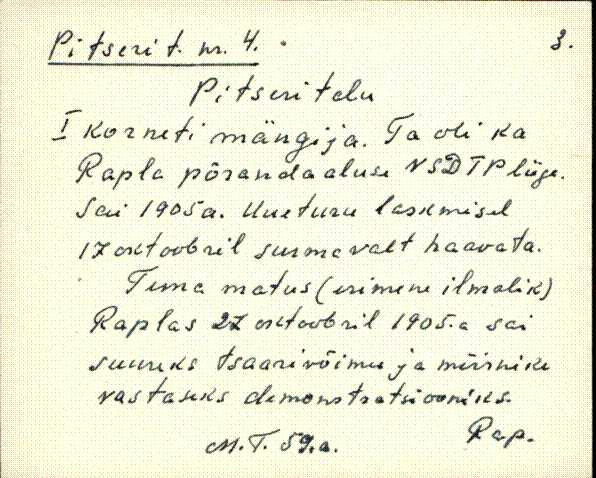 Pitserit. nr. 4. 3.
Pitseri talu
I korneti mängija. Ta oli ka
Rapla põrandaaluse VSDTP liige.
Sai 1905 a. Uueturu laskmisel
17 oktoobril surmavalt haavata.
Tema matus (esimene ilmalik)
Raplas 27 oktoobril 1905.a sai
suureks tsaarivõimu ja mõisnike
vastaseks demonstratsiooniks.
M.T. 59.a. Rap.